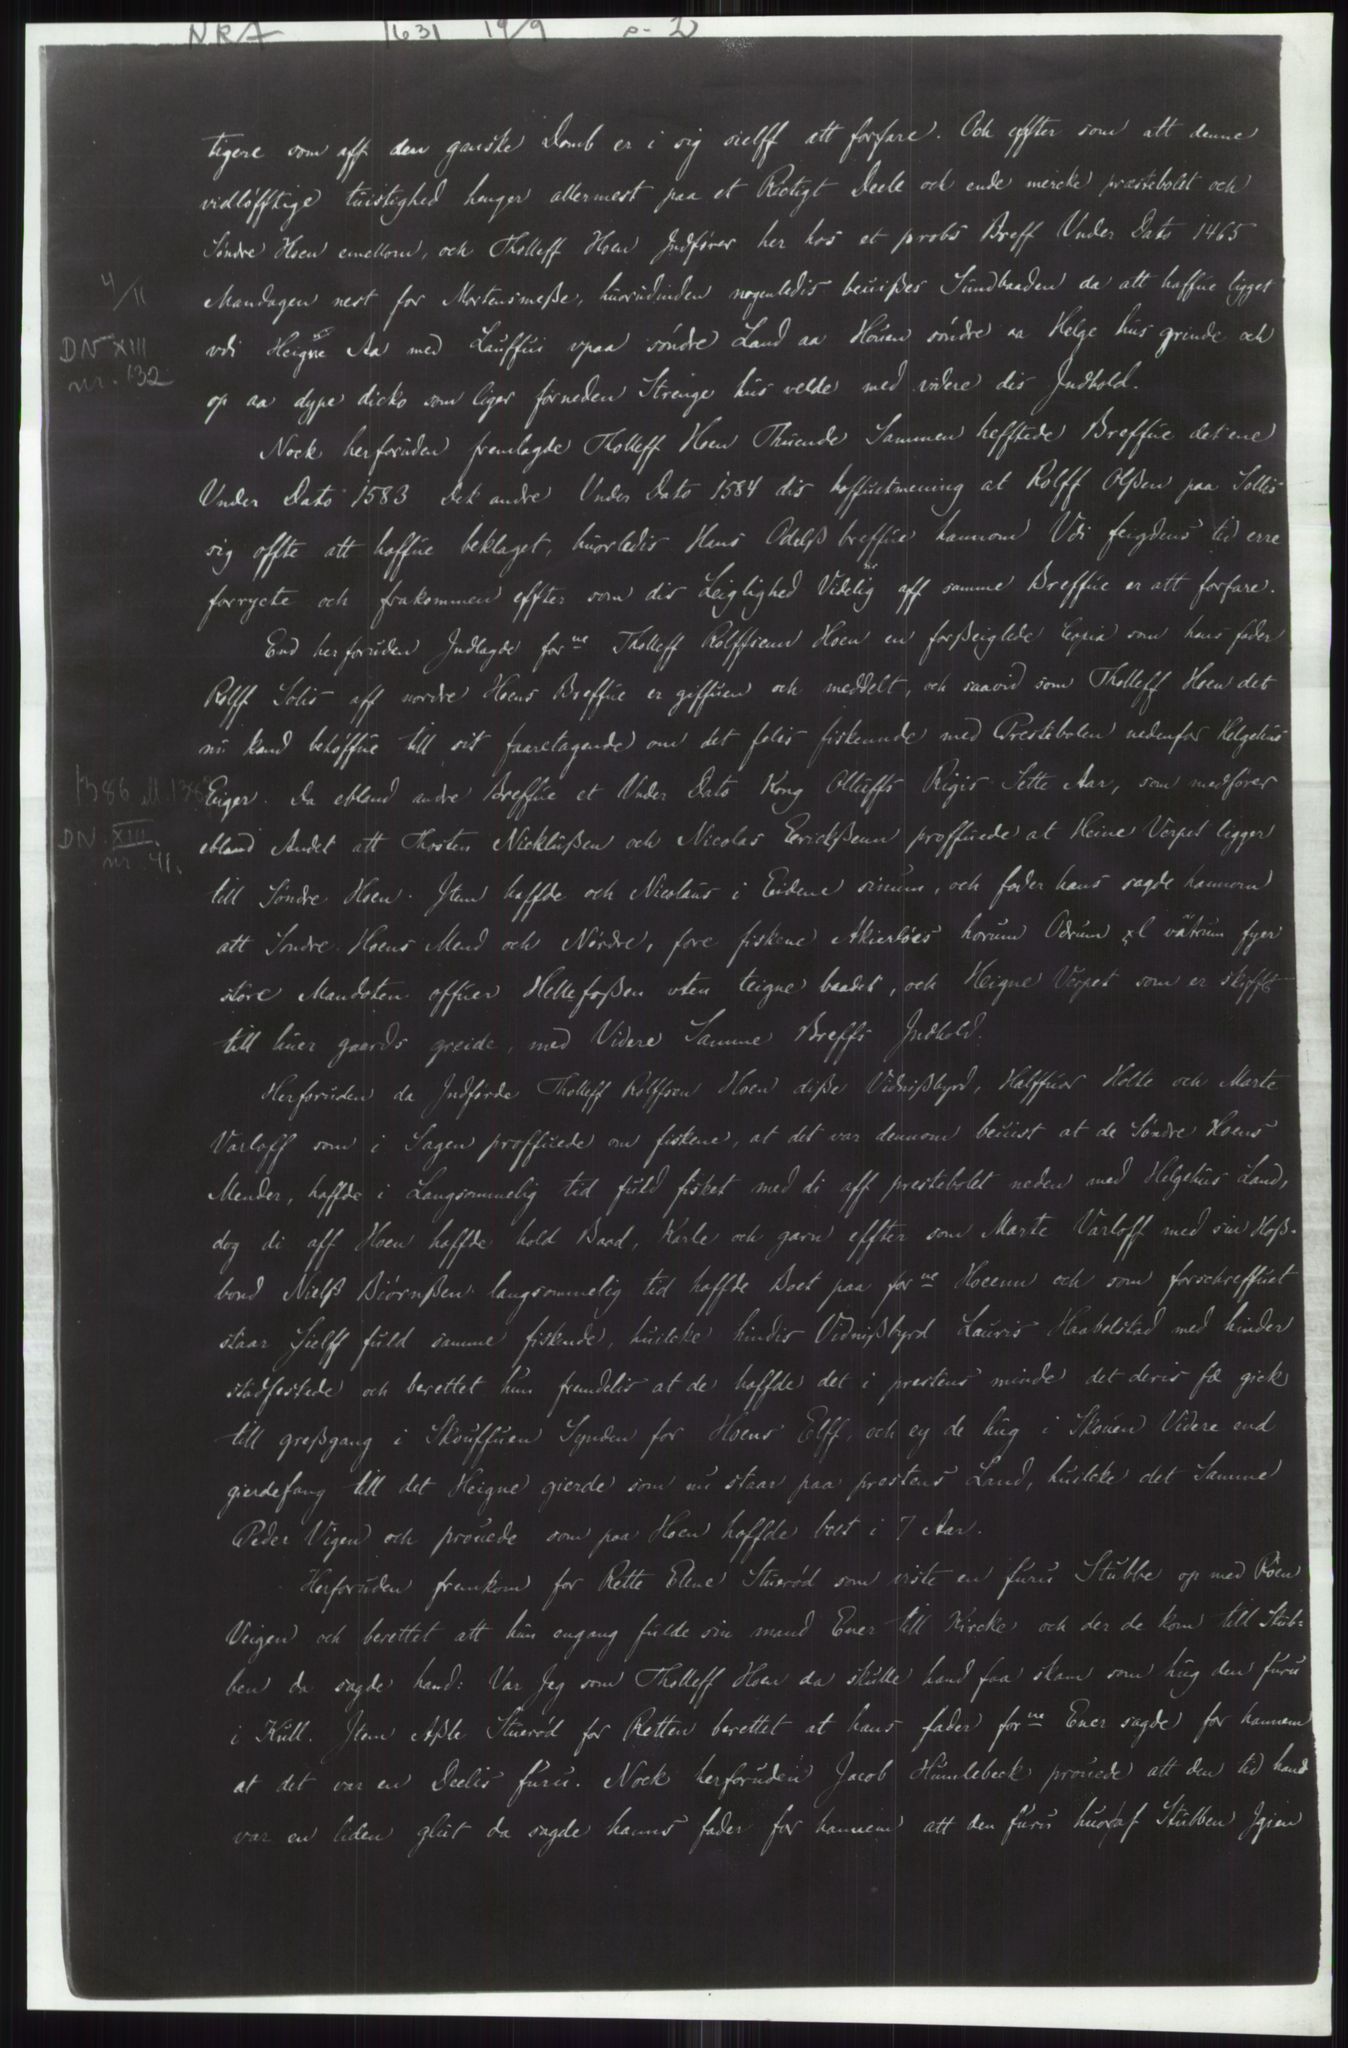 NRA 1631 19/9 s. 2
tigere som aff den ganske Domb er i sig sielff att forfare. Och effter som att denne
vidløfftige tuistighed henger allermest paa et Rictigt Deele och ende mercke præstebolet och
Søndre Hoen emellom, och Tholleff Hoen Jndfører her hos et probs Breff Vnder Dato 1465
4/11
Mandagen nest for Mortensmeße, huorudinden nogenledis beuißes Sundbaaden da att haffue ligget
DN XIII
nr. 132
vdi Heigne Aa med Lauffui vpaa søndre Land aa Houen søndre aa Helge hus grinde och
op aa dype dicko som liger forneden Strenge hus velde med videre dis Jndhold.
Nock herforuden fremlagde Tholleff Hoen Thuende Sammen hefftede Breffue det ene
Vnder Dato 1583 Dek andre Vnder Dato 1584 dis haffuetmening at Rolff Olßen paa Sollis
sig offte att haffue beklaget, huorledis Hans Odelß breffue hannom Vdi feigdens tid erre
forrycte och frakommen effter som dis Leiglighed Videlig aff samme Breffue er att forfare.
End herforuden Jndlagde forne Tholleff Rolffsenn Hoen en forßeiglede Copia som hans fader
Rolff Solis aff nordre Hoens Breffue er giffuen och meddelt, och saavid som Tholleff Hoen det
nu kand behøffue till sit faaretagende om det felis fiskennde med Prestebolen nedenfor Helgehus
1386
Eiger. Da ebland andre Breffue et Vnder Dato Kong Olluffs Rigis Sette Aar, som medfører
DN. XIII.
nr. 41.
ebland Andet att Thosten Nicklußen och Nicolas Eerickßenn proffuede at Heine Verpet ligger
till Søndre Hoen. Jtem haffde och Nicolaus i Eidene sinum, och fader hans sagde hannom
att Sndre Hoens Mend och Nordre, fore fiskene Akierløes horum Odrum xl vätrum fyer
store Mandoten offuer Hellefoßen vten teigne baadet, och Heigne Verpet som er skifft
till huer gaards greide, med Videre Samme Breffs Jndhold.
Herforuden da Jndførde Tholleff Rolffsen Hoen diße Vidnißbyrd, Halffuor Holte och Marte
Varloff som i Sagen proffuede om fiskene, at det var dennom beuist at de Søndre Hoens
Mender, haffde i Langsommelig tid fuld fisket med di aff prestebolet neden med Helgehus Land,
dog di aff Hoen haffde hold Baad, Karle och garn effter som Marte Varloff med sin Hoß-
bond Nielß Biørnßen langsommelig tid haffde Boet paa forne Hoeenn och som forschreffuet
staar Sielff fuld samme fiskende, huilcke hindis Vidnißbyrd Lauris Haabelstad med hinder
stadfestede och berettet hun fremdelis at de haffde det i prestens minde det deris fæ gick
till greßgang i Skouffuen Synden for Hoens Elff, och ey de hug i Skouen Videre end
gierdefang till det Heigne gierde som nu staar paa prestens Land, huilcke det Samme
Peder Vigen och prouede som paa Hoen haffde boet i 7 Aar.
Herforuden fremkom for Rette Elene Stuerød som viste en furu Stubbe op med Roen
Veigen och berettet att hun engang fulde sin mand Ener till Kircke och der de kom till Stub-
ben da sagde hand: Var Jeg som Tholleff Hoen da skulle hand faa skam som hug den furu
i Kull. Jtem Aßle Stuerød for Retten berettet at hans fader forne Ener sagde for hannem
at det var en Deelis furu. Nock herforuden Jacob Humlebeck prouede att den tid hand
var en liden glut da sagde hanns fader for hannem att den furu huoraf Stubben Jgien